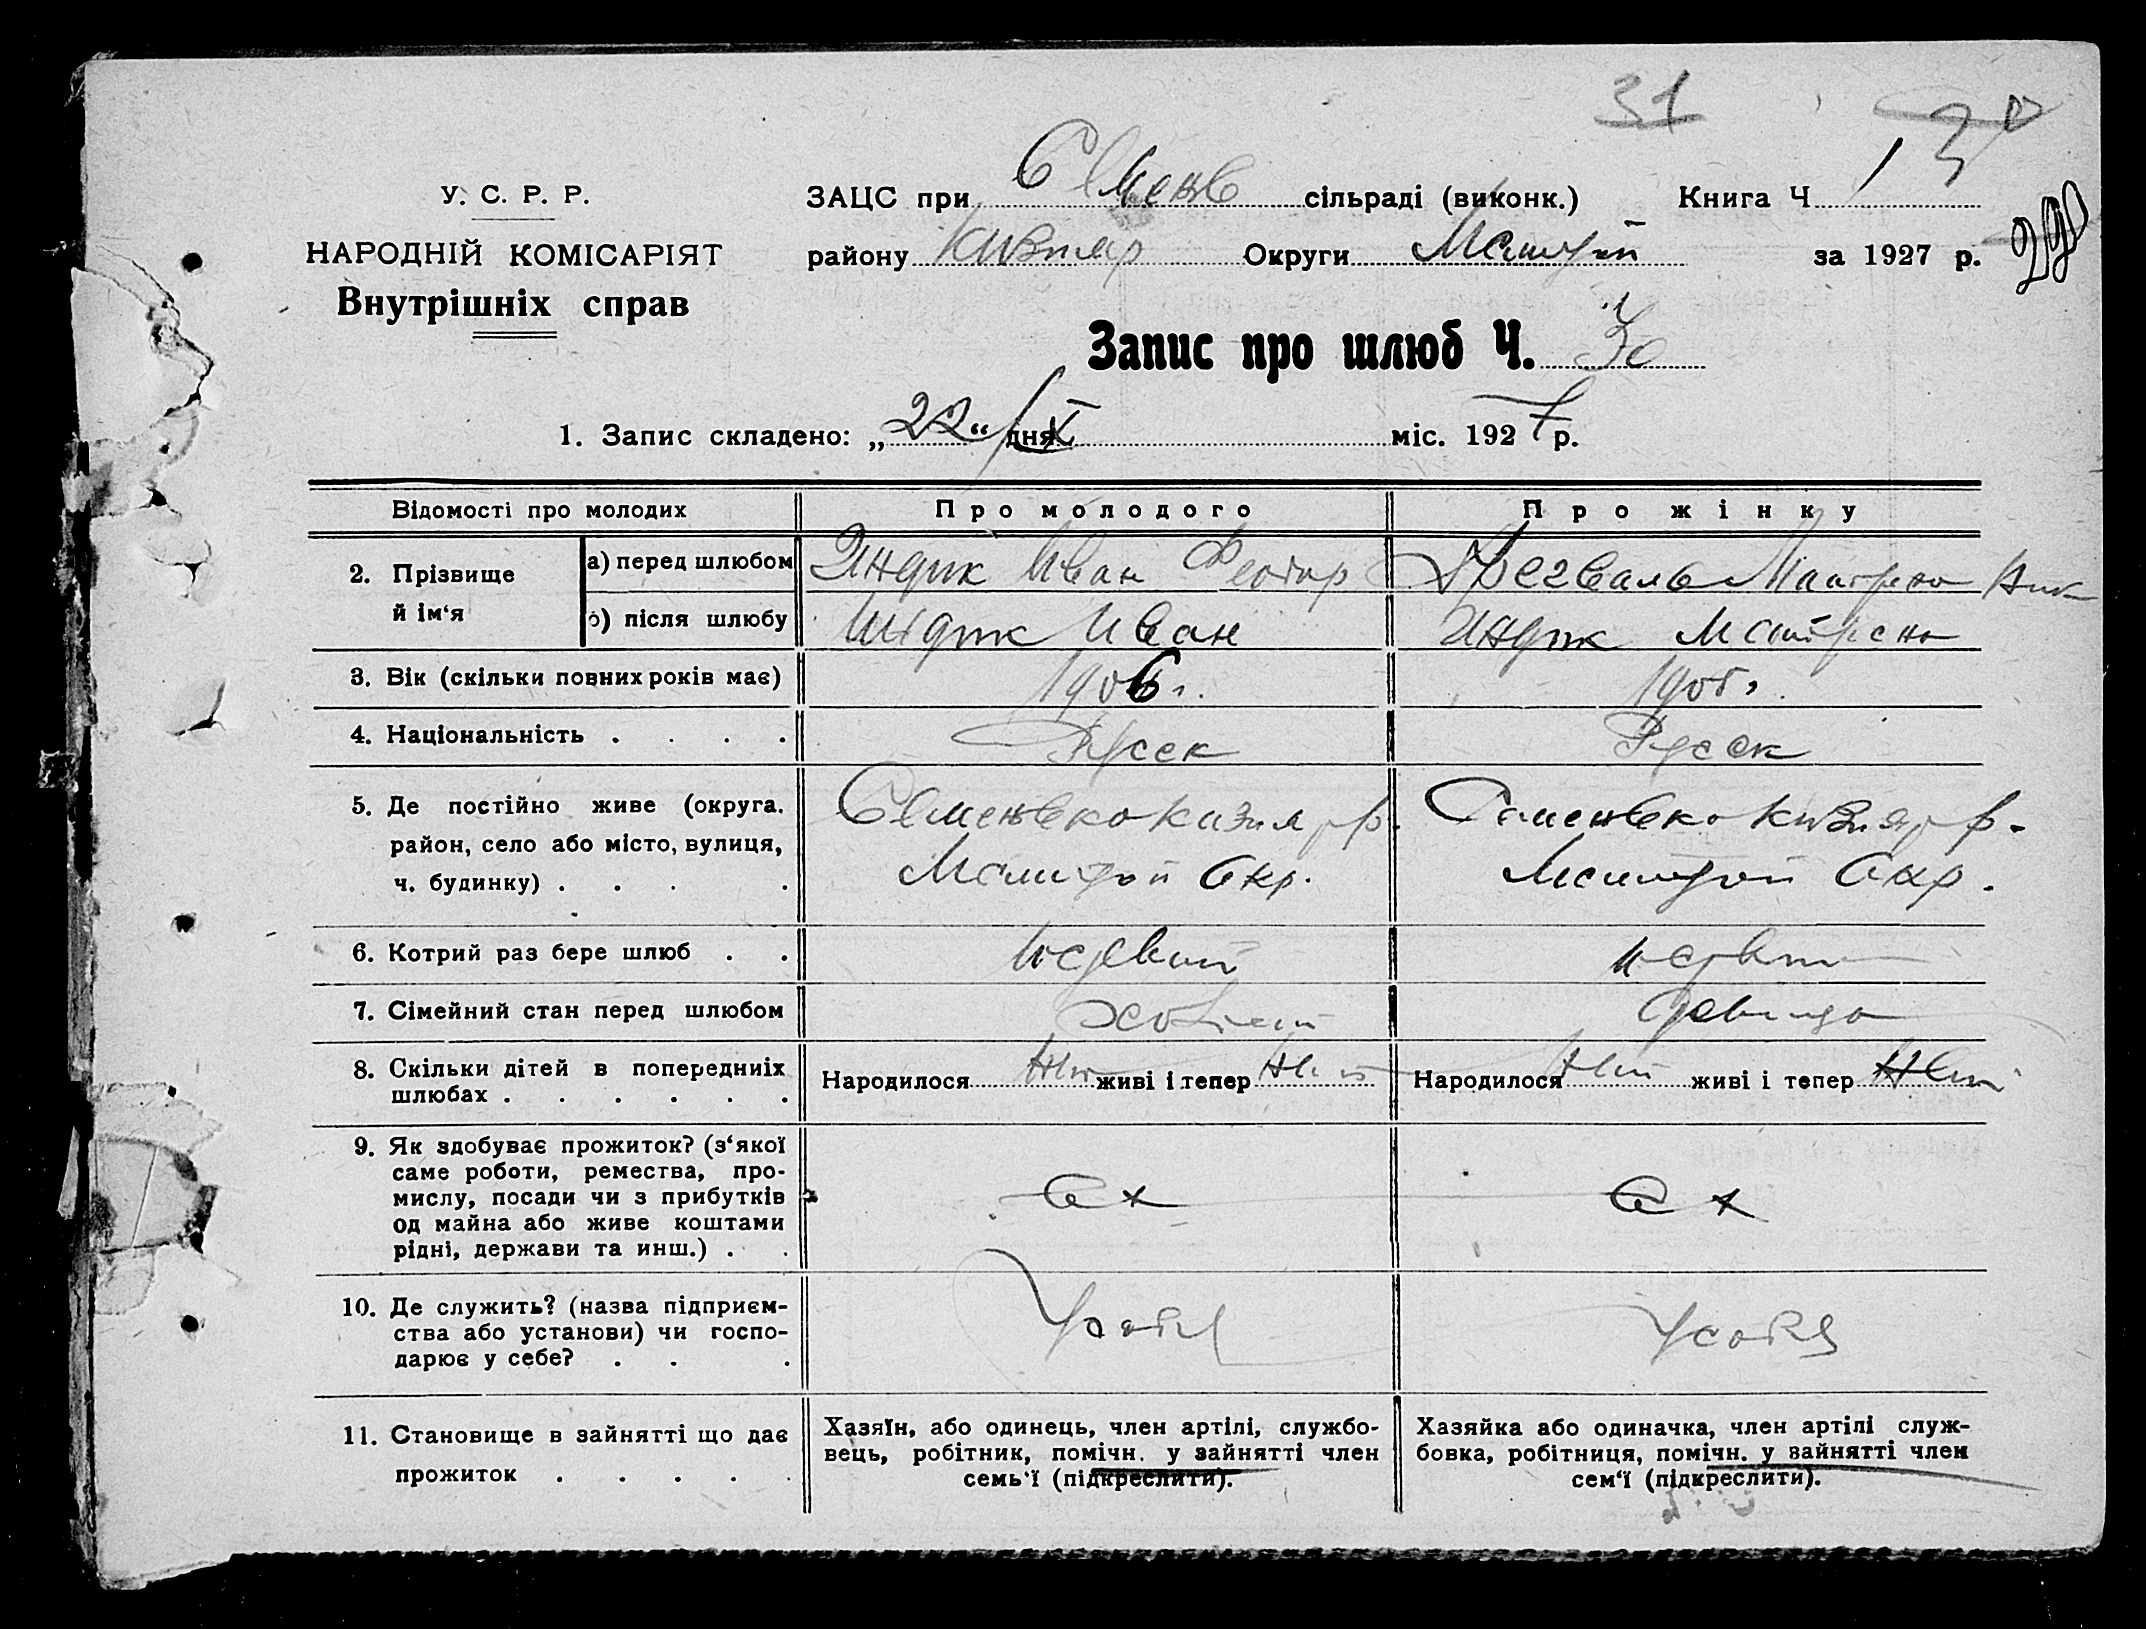 31
У. С. Р. Р.
НАРОДНІЙ КОМІСАРІЯТ
Внутрішніх справ
ЗАЦС при Семенв сільраді (виконк.) Книга Ч
району Округи за 1927 р.
Запис про шлюб Ч. 30
1. Запис складено: „22“ дня X міс. 1927 р.
Відомості про молодих Про молодого Про жінку
2. Прізвище й ім‘я
а) перед шлюбом Индик Иван Матрена
б) після шлюбу Индик Иван Индик Матрена
3. Вік (скільки повних років має) 1906 г. 1905
4. Національність . . . . Русск Русск
5. Де постійно живе (округа,
район, село або місто, вулиця,
ч. будинку) . . . .
Мелитоп Окр. Мелитоп Окр.
6. Котрий раз бере шлюб . . первый первый
7. Сімейний стан перед шлюбом холостой девица
8. Скільки дітей в попередниіх
шлюбах . . . . . .
Народилося Нет живі і тепер Нет Народилося Нет живі і тепер Нет
9. Як здобуває прожиток? (з‘якої
саме роботи, ремества, про-
мислу, посади чи з прибутків
од майна або живе коштами
рідні, держави та инш.) . .
с х с х
10. Де служить? (назва підприєм-
ства або установи) чи госпо-
дарює у себе? . . .
У себя У себя
11. Становище в зайнятті що дає
прожиток . . . . .
Хазяїн, або одинець, член артілі, службо-
вець, робітник, помічн. у зайнятті член
семь‘ї (підкреслити).
Хазяйка або одиначка, член артілі служ-
бовка, робітниця, помічн. у зайнятті член
сем‘ї (підкреслити).